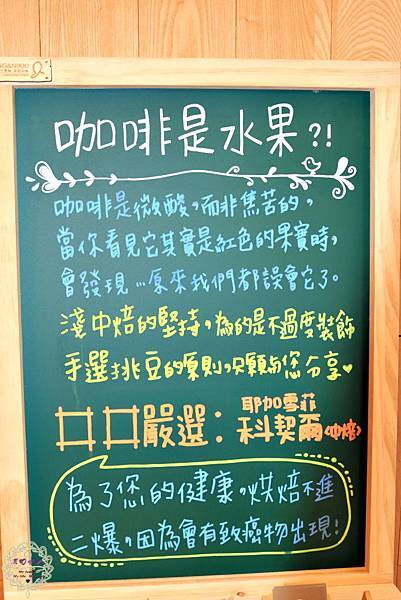 咖啡是水果?!
咖啡是微酸,而非焦苦的,
當你看見它其實是紅色的果實時,
會發現…原來我們都誤會它了。
淺中焙的堅持,為的是不過度裝飾
手選挑豆的原則,只願與您分享♥
口口嚴選:耶加雪菲
科契爾<中焙>
為了您的健康,烘焙不進
二爆,因為會有致癌物出現!